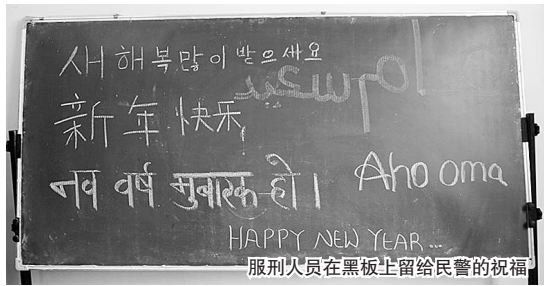 새해 복 많이 받으세요
新年快乐
नव वर्ष मुबारक हो।
Aho oma
HAPPY NEW YEAR...
服刑人员在黑板上留给民警的祝福